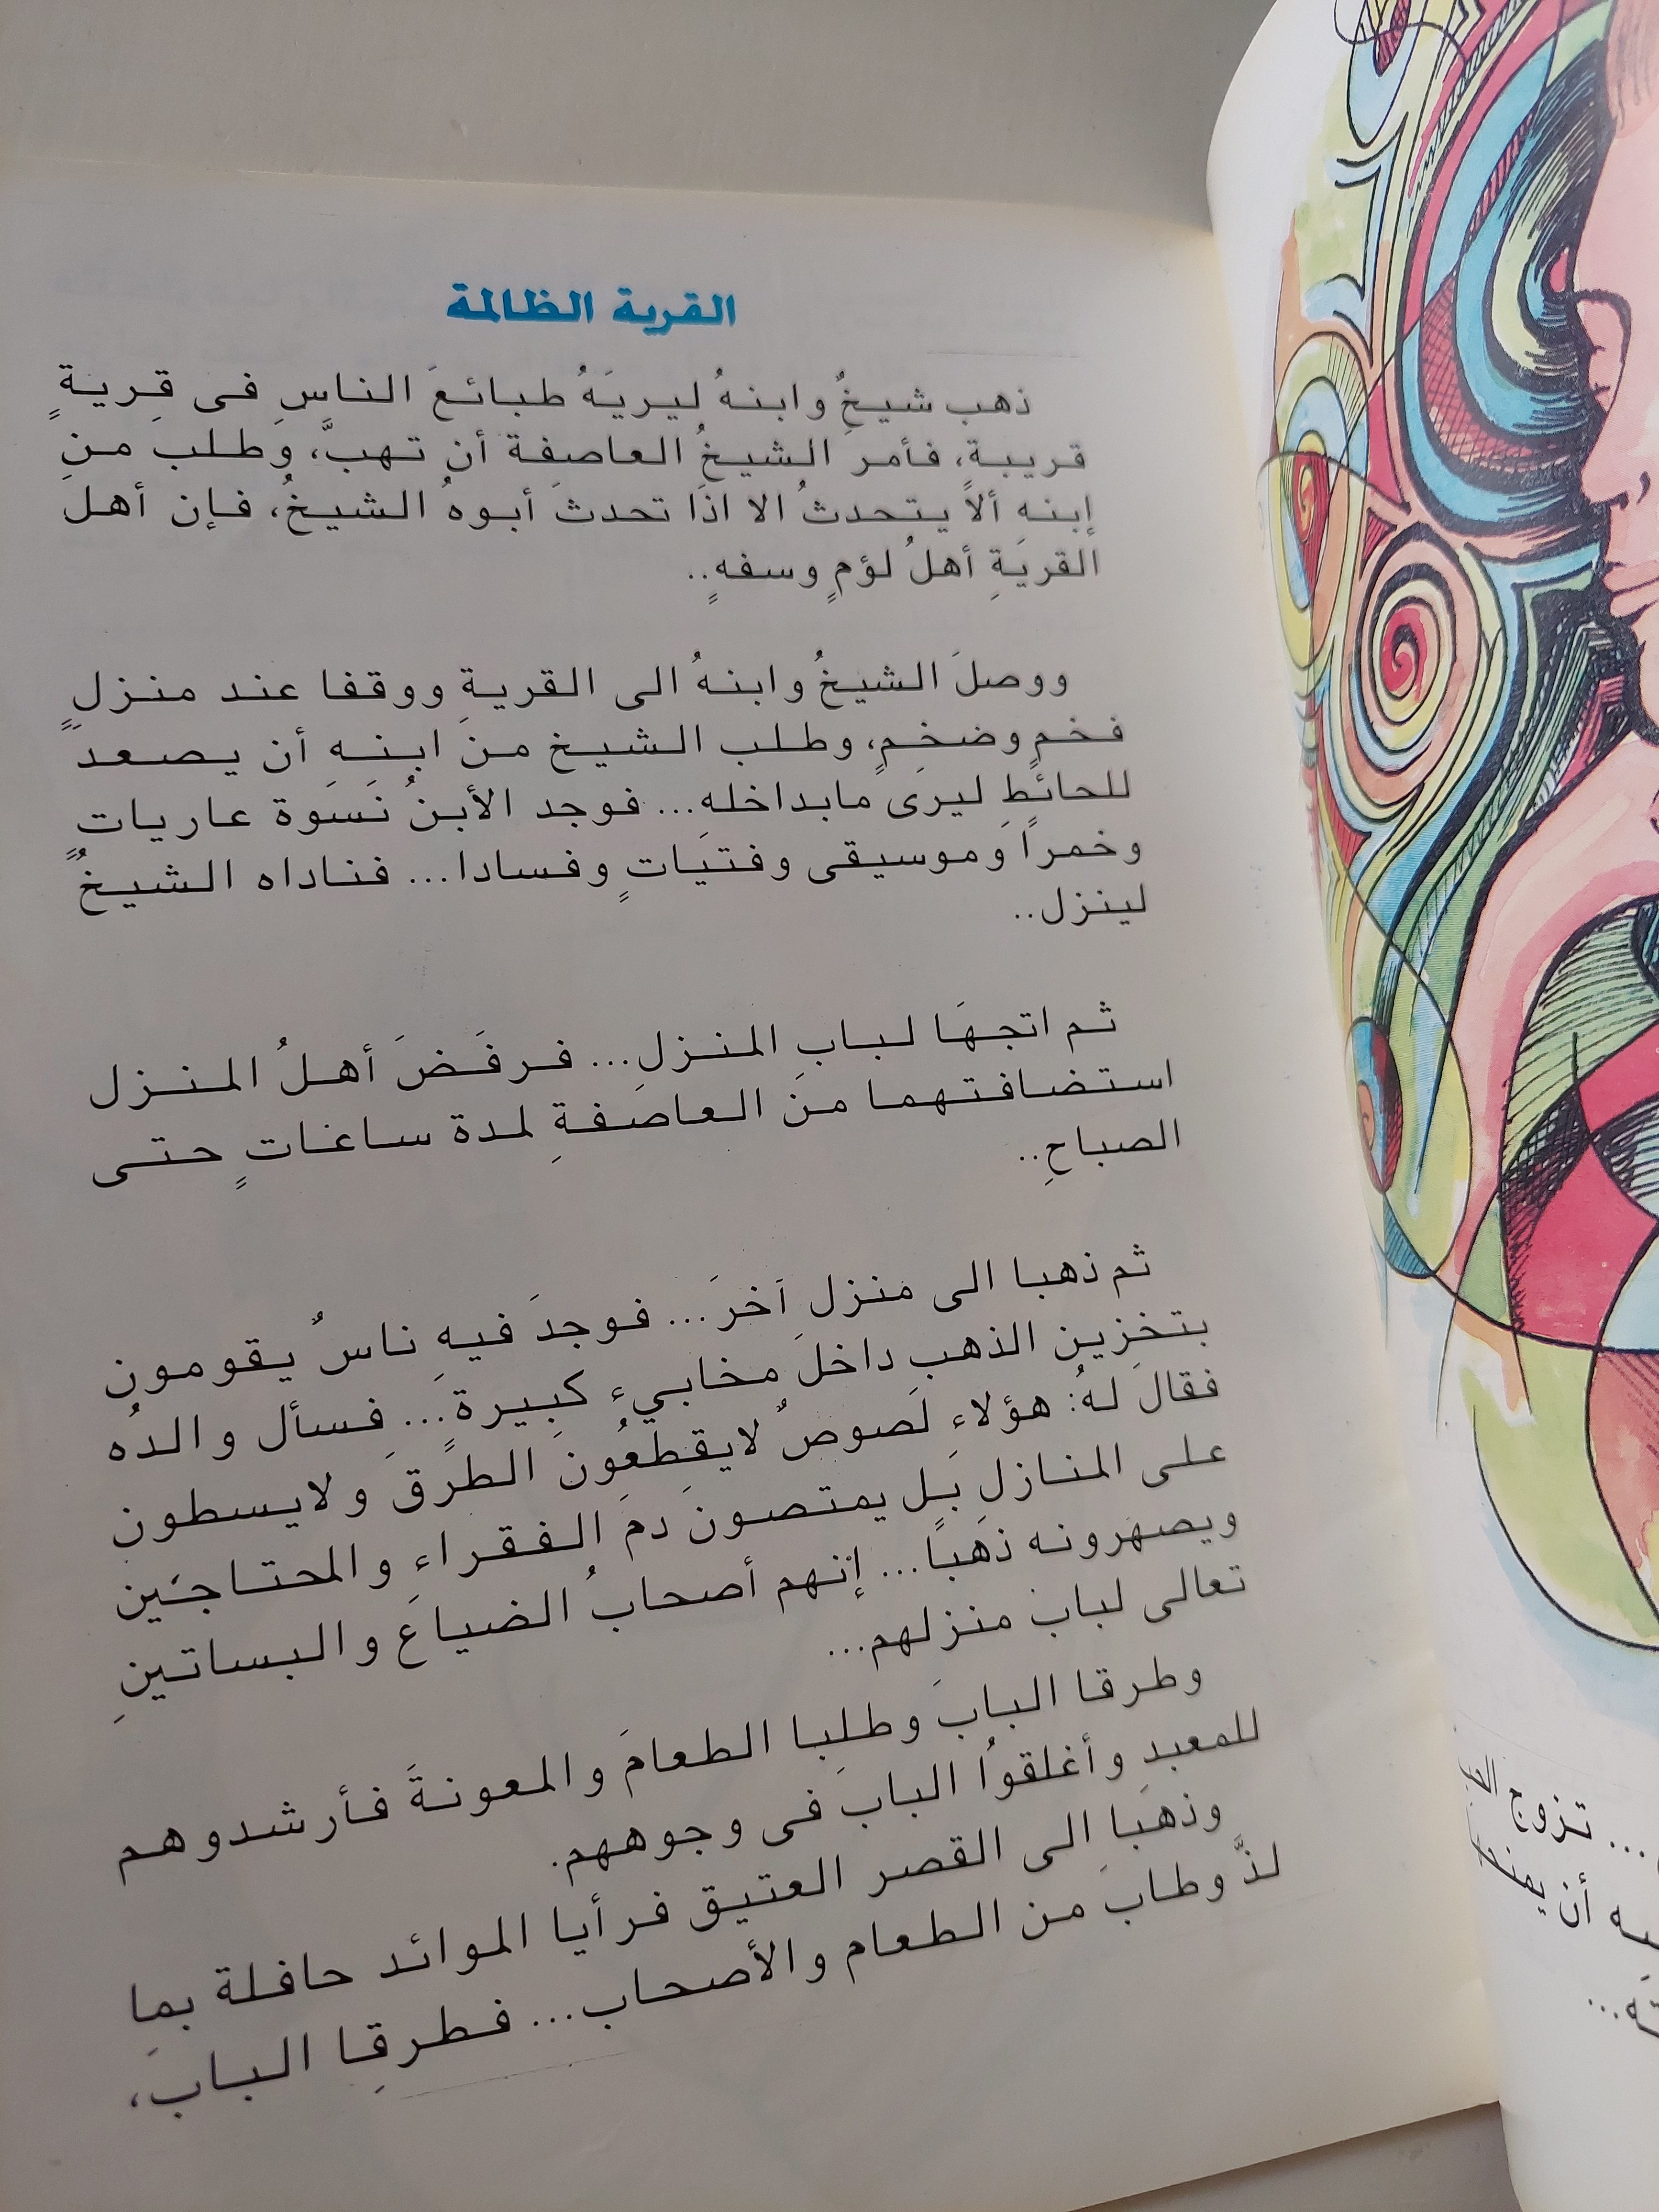 القرية الظالمة
ذهب شيخٌ وابنهُ ليريَهُ طبائعَ الناسِ فى قريةٍ
قريبة، فأمرَ الشيخُ العاصفة أن تهبَّ، وطلبَ من
إبنهِ ألاَّ يتحدثُ الا اذَا تحدثَ أبوهُ الشيخُ، فإن أهلَ
القريَةِ أهلُ لؤمٍ وسفهٍ..
ووصلَ الشيخُ وابنهُ الى القريةِ ووقفا عند منزلٍ
فخمٍ وضخمٍ، وطلب الشيخ منَ ابنهِ أن يصعدَ
للحائطِ ليرَى مابداخلهِ... فوجد الأبنُ نَسَوة عارياتٍ
وخمراً وَموسيقى وفتيَاتٍ وفسادا... فناداه الشيخُ
لينزل..
ثم اتجهَا لبابِ المنزلِ... فرفَضَ أهلُ المنزل
استضافتهما منَ العاصفةِ لمدة ساعاتٍ حتى
الصباحِ..
ثم ذهبا الى منزلٍ آخرَ... فوجدَ فيهِ ناسٌ يقومون
بتخزينِ الذهب داخلَ مخابيء كبيرةٍ... فسأل والدُه
فقالَ لهُ: هؤلاءِ لَصوصٌ لايقطَعُونَ الطرقَ ولايسطون
على المنازلِ بَل يمتصونَ دمَ الفقراءِ والمحتاجين
ويصهرونه ذهَباً... إنهم أصحابُ الضياعَ والبساتينِ
تعالى لباب منزلهم...
وطرقا البابَ وطلبا الطعامَ والمعونةَ فأرشدوهم
للمعبدِ وأغلقوُا البابَ فى وجوههم.
وذهَبا الى القصر العتيق فرأيا الموائد حافلة بما
لذَّ وطابَ من الطعام والأصحاب... فطرقا البابَ،
... تزوج
أن